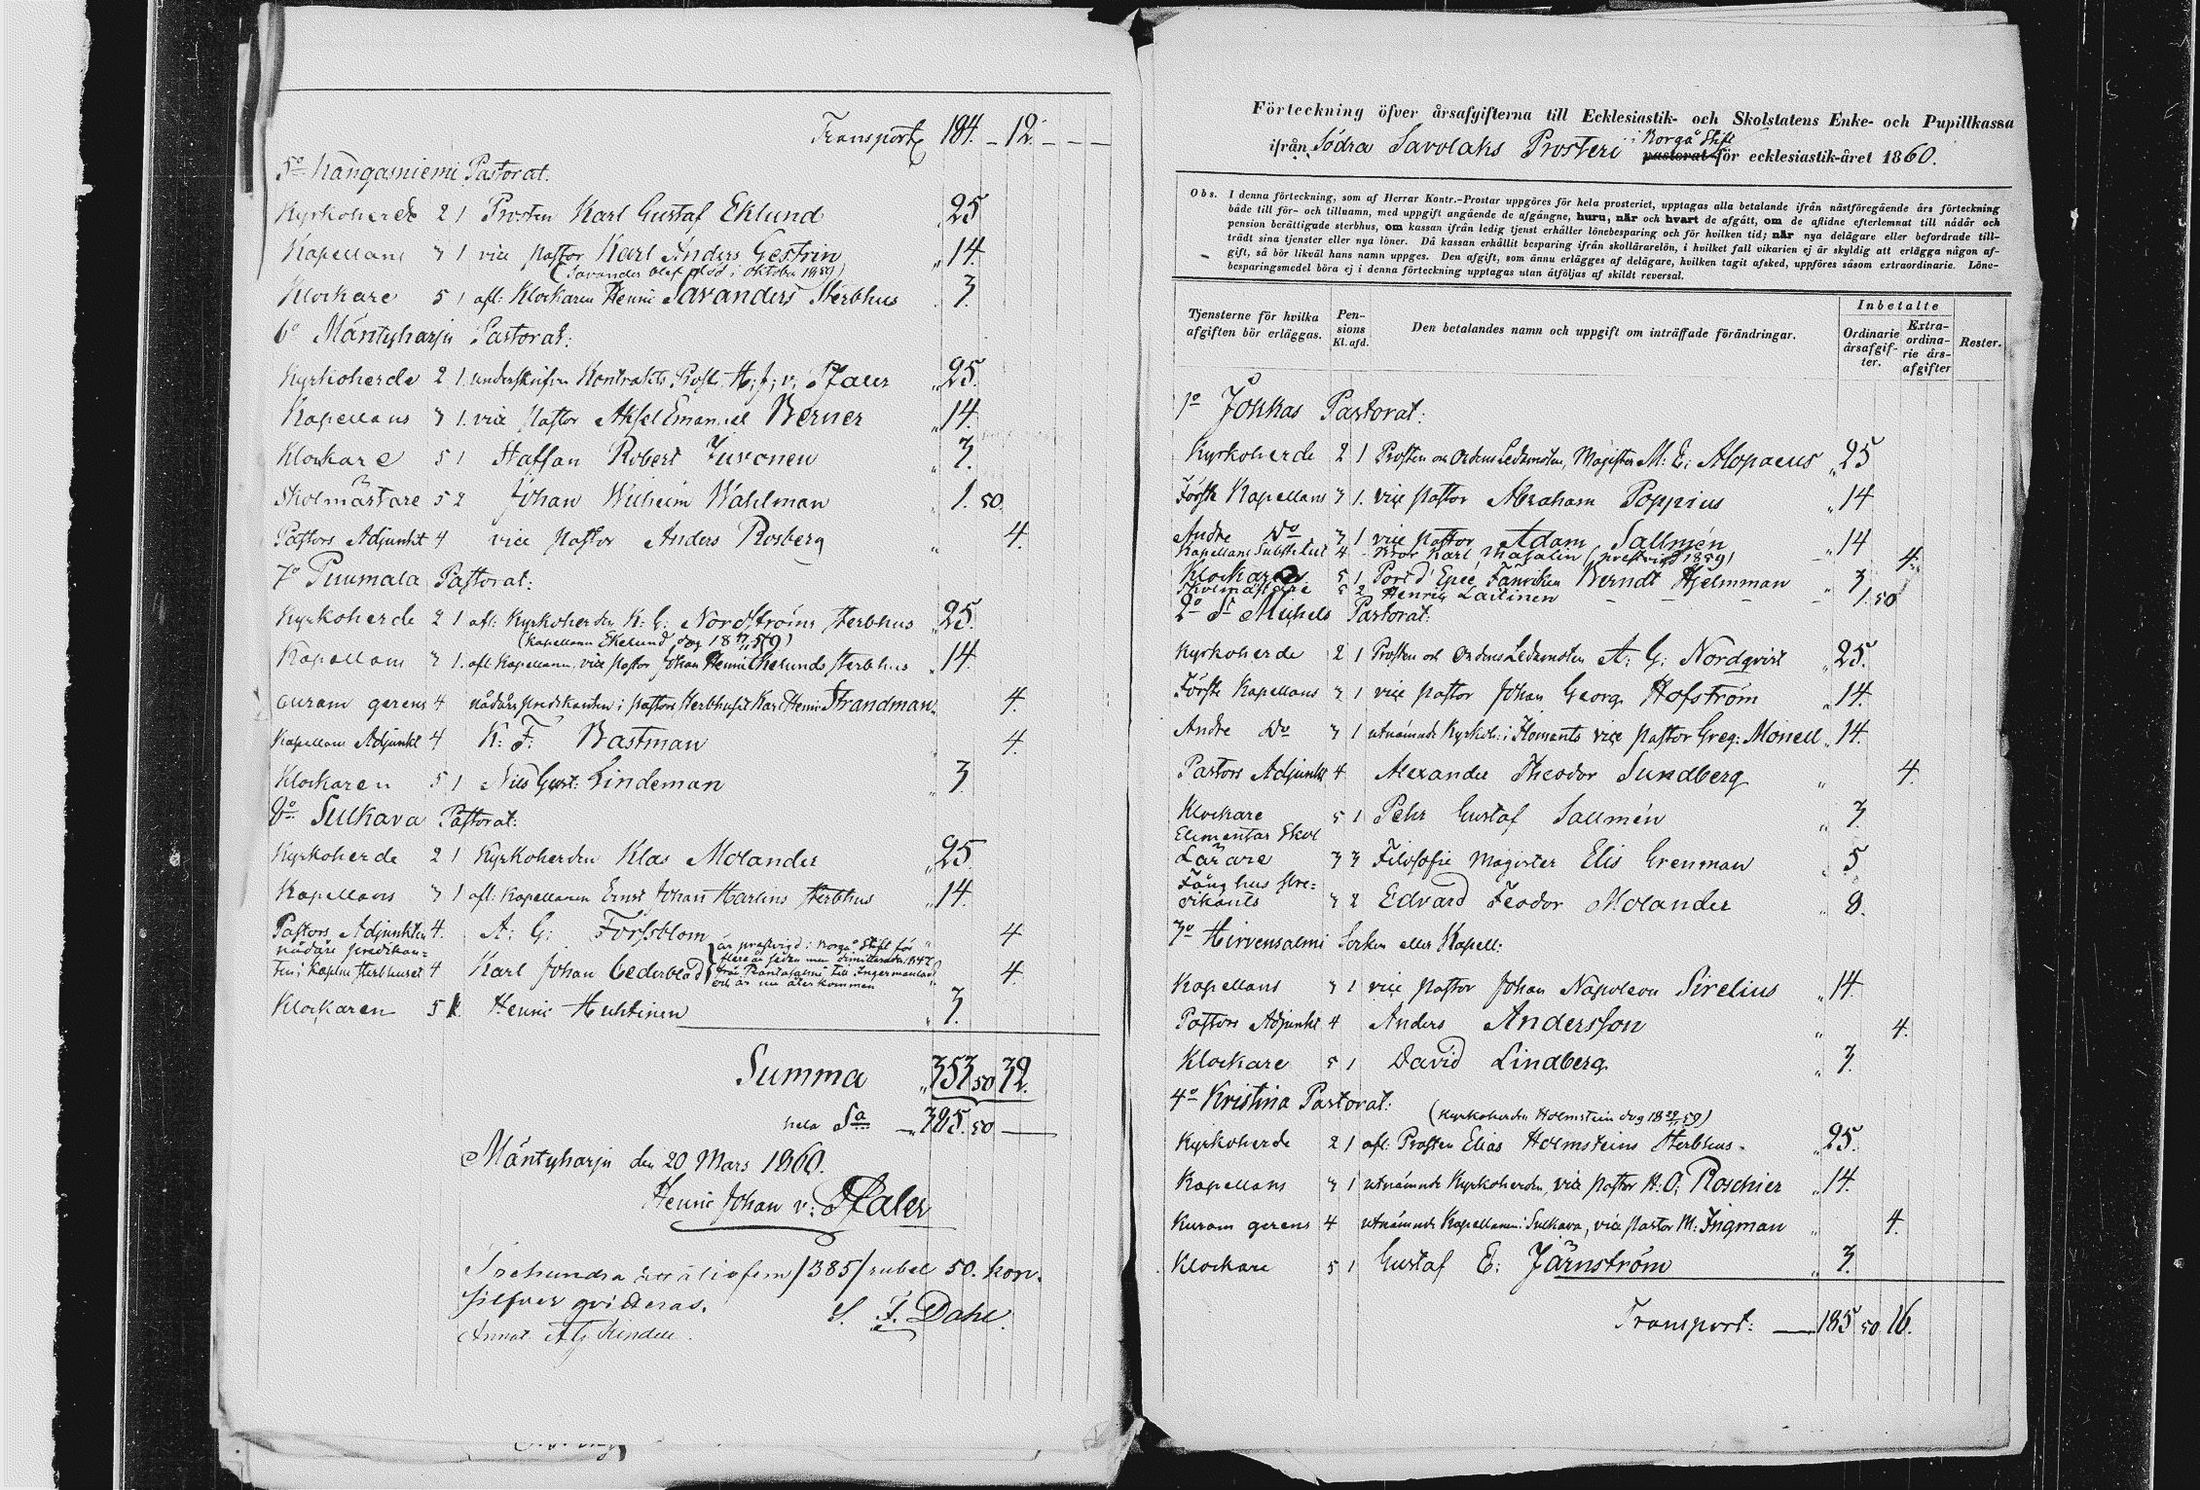 Transport 184. – 12. – – –
5º Kangasniemi Pastorat.
Kyrkoherde 2 1 Prosten Karl Gustaf Eklund 25
Kapellans 3 1 vice pastor Karl Anders Gestrin „ 14.
(Savander blef död i oktober 1859)
Klockare 5 1 afl: Klockaren Henric Savanders Sterbhus 3.
6º Mäntyharju Pastorat:
Kyrkoherde 2 1. underskrifven Kontrakts Prost H: J: v: Pfaler „ 25.
Kapellans 3 1. vice pastor Aksel Emanuel Berner „ 14.
Klockare 5 1 Staffan Robert Juvonen „ 3.
Skolmästare 5 2 Johan Wilhelm Wahlman „ 1. 50.
Pastors Adjunkt 4 vice pastor Anders Rosberg „ 4.
7º Puumala Pastorat:
Kyrkoherde 2 1 afl: Kyrkoherden K: G: Nordströms Sterbhus „ 25.
(Kapellanen Ekelund dog 59)
Kapellans 3 1. afl. Kapellanen, vice pastor Johan Henric Ekelunds sterbhus „ 14.
curam gerens 4 nådårs predikanten i pastors sterbhuset Karl Henric Strandman „ 4.
Kapellans Adjunkt 4 K: F: Bastman „ 4.
Klockaren 5 1 Nils Gust: Lindeman „ 3
8º Sulkava Pastorat:
Kyrkoherde 2 1 Kyrkoherden Klas Molander „ 25
Kapellans 3 1 afl: Kapellanen Ernst Johan Harlins Sterbhus „ 14.
Pastors Adjunkten 4. A: G: Forssblom „ 4
nådårs predikan-
ten i Kaplns sterbhuset 4 Karl Johan Cederblad „ 4.
är prestvigd i Borgå Stift för
flere år sedan men dimitterades 1847
från Rantasalmi till Ingermanland
och är nu återkommen
Klockaren 5 1. Henric Huhtinen „ 3.
Summa „ 353 50 32.
hela Sa — 385. 50 —
Mäntyharju den 20 Mars 1860.
Henric Johan v: Pfaler
Trehundra åttatiofem /385/ rubel 50. kop.
silfver qvitteras.
S. T. Dahl.
Annot.
Förteckning öfver årsafgifterna till Ecklesiastik- och Skolstatens Enke- och Pupillkassa
ifrån Södra Savolaks Prosteri i Borgå Stift pastorat för ecklesiastik-året 1860.
Obs. I denna förteckning, som af Herrar Kontr.-Prostar uppgöres för hela prosteriet, upptagas alla betalande ifrån nästföregående års förteckning
både till för- och tillnamn, med uppgift angående de afgångne, huru, när och hvart de afgått, om de aflidne efterlemnat till nådår och
pension berättigade sterbhus, om kassan ifrån ledig tjenst erhåller lönebesparing och för hvilken tid; när nya delägare eller befordrade till-
trädt sina tjenster eller nya löner. Då kassan erhållit besparing ifrån skollärarelön, i hvilket fall vikarien ej är skyldig att erlägga någon af-
gift, så bör likväl hans namn uppges. Den afgift, som ännu erlägges af delägare, hvilken tagit afsked, uppföres såsom extraordinarie. Löne-
besparingsmedel böra ej i denna förteckning upptagas utan åtföljas af skildt reversal.
Tjensterne för hvilka
afgiften bör erläggas.
Pen-
sions
Kl. afd.
Den betalandes namn och uppgift om inträffade förändringar.
Inbetalte
Ordinarie
årsafgif-
ter.
Extra-
ordina-
rie års-
afgifter
Rester.
1º Jokkas Pastorat:
Kyrkoherde 2 1 Prosten och OrdensLedamoten, Magister M: E: Alopaeus „ 25
Förste Kapellans 3 1. vice pastor Abraham Poppius „ 14
Andre Do 3 1 vice pastor Adam Sallmén „ 14
Kapellans Substitut 4 – Karl Masalin (prestvigd 1859) 4.
Klockares 5 1 Port d'Epée Fänriken Berndt Hjelmman „ 3
Skolmästare 5 2 Henrik Laitinen – – – – 1. 50
2º St Michels Pastorat:
Kyrkoherde 2 1 Prosten och OrdensLedamoten A: G: Nordqvist „ 25.
Förste Kapellans 3 1 vice pastor Johan Georg Hofström „ 14.
Andre Do 3 1 utnämnde Kyrkoh: i Ilomants vice pastor Greg: Monell „ 14.
Pastors Adjunkt 4 Alexander Theodor Sundberg „ 4.
Klockare 5 1 Pehr Gustaf Sallmén „ 3.
Elementar Skol
Lärare 3 3 Filosofie Magister Elis Grenman „ 5
Fånghus pre-
dikants 3 2 Edvard Feodor Molander „ 8.
3º Hirvensalmi Socken eller Kapell:
Kapellans 3 1 vice pastor Johan Napoleon Sirelius „ 14.
Pastors Adjunkt 4 Anders Andersson „ 4.
Klockare 5 1 David Lindberg „ 3.
4º Kristina Pastorat:
(Kyrkoherden Holmstein dog 59)
Kyrkoherde 2 1 afl: Prosten Elias Holmsteins Sterbhus „ 25.
Kapellans 3 1 utnämnde Kyrkoherden, vice pastor H: O: Roschier „ 14.
Kuram gerens 4 utnämnde Kapellanen i Sulkava, vice pastor M: Ingman „ 4.
Klockare 5 1 Gustaf E: Järnström „ 3.
Transport: — 185 50 16.